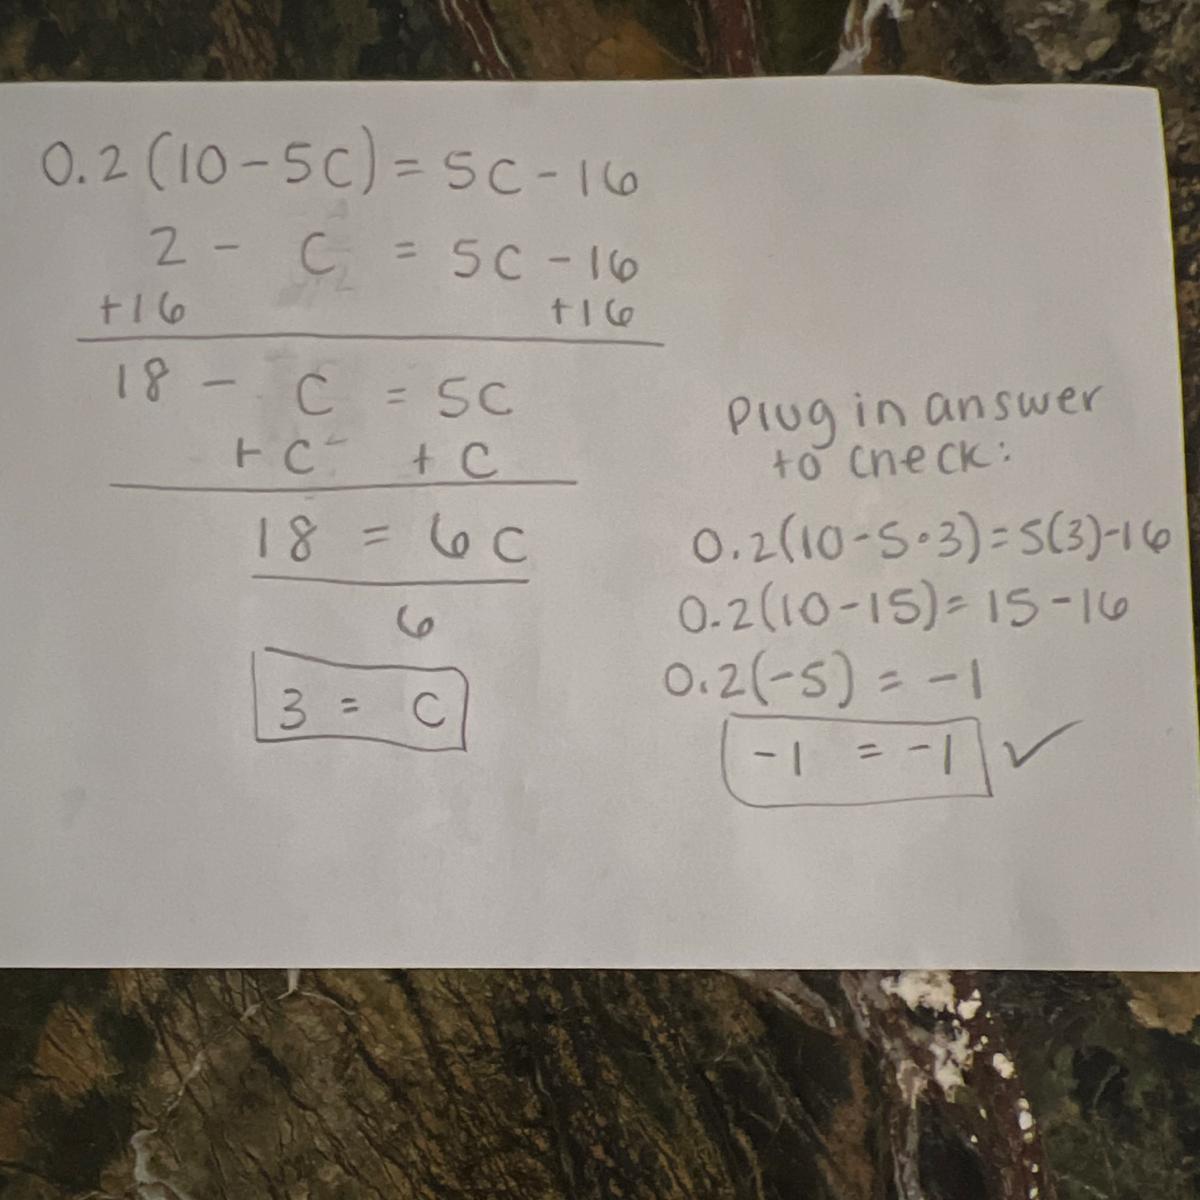 0.2(10-5C)=5C-16
2 - C = 5C -16
+16 +16
18 - C = 5C
+ C + C
18 = 6C
6
3 = C
Plug in answer
to check:
0.2(10-5•3)=5(3)-16
0.2(10-15)=15-16
0.2(-5) = -1
-1 = -1 ✓